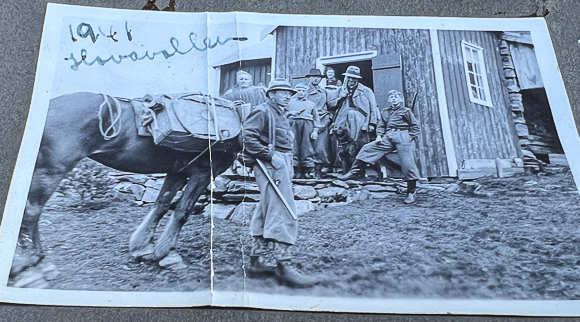 1941
Hovavollen